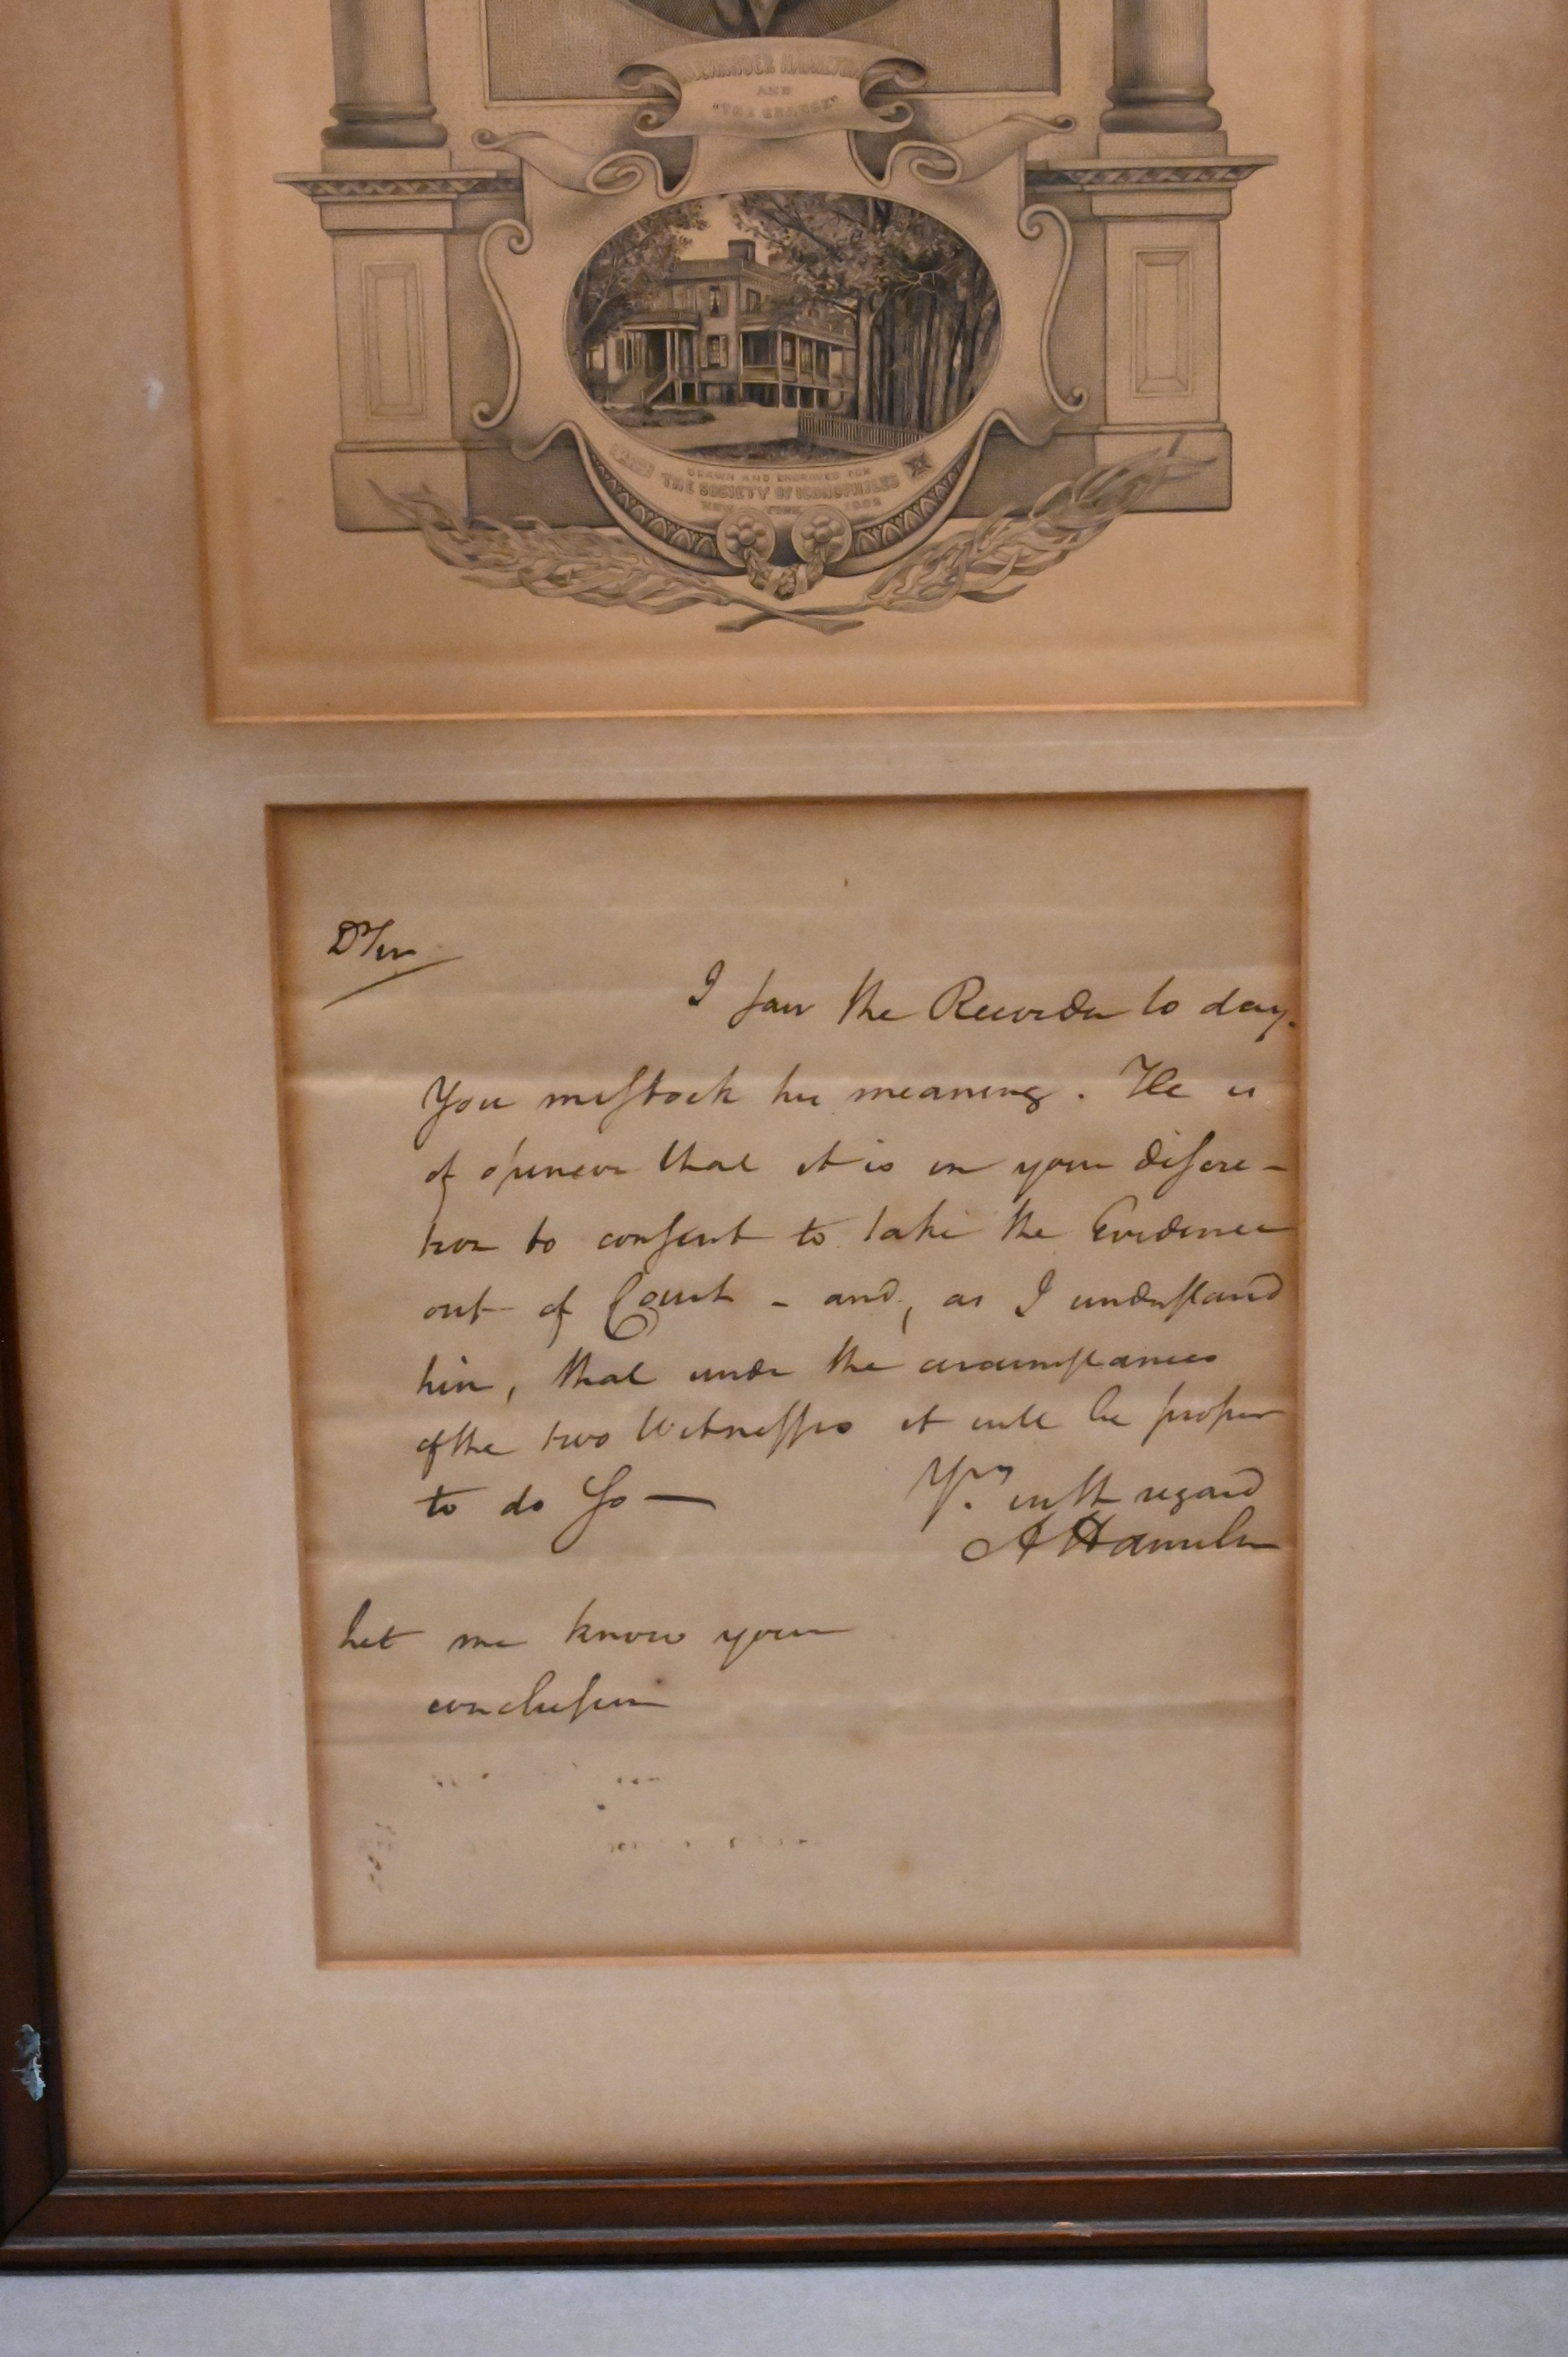 ALEXANDER HAMILTON
AND
"THE GRANGE"
DRAWN AND ENGRAVED FOR
THE SOCIETY OF ICONOPHILES
NEW YORK
Dr Sir
I saw the Recorder to day.
You mistook his meaning. He is
of opinion that it is in your discre-
tion to consent to take the Evidence
out of Court - and, as I understand
him, that under the circumstances
of the two Witnesses it will be proper
to do so —
Yrs with regard
A Hamilton
Let me know your
conclusion